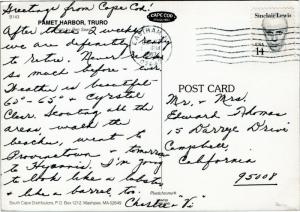 Greetings from Cape Cod!
B143
PAMET HARBOR, TRURO
After these 2 weeks
we are definitely ready
to retire. Never
so much before -
Weather is beautiful
60°-65° & Crystal
Clear. Scouting all the
areas, walk the
beaches, went to
Provincetown & tomorrow
to Hyannis. I'm going
to look like a lobster
& like a barrel too.
Chester & Vi
South Cape Distributors, P.O. Box 1212, Mashpee, MA 02649
CAPE COD
Sinclair Lewis
USA
14
POST CARD
Mr. & Mrs.
Edward Thomas
15 Darrye Drive
Campbell,
California
95008